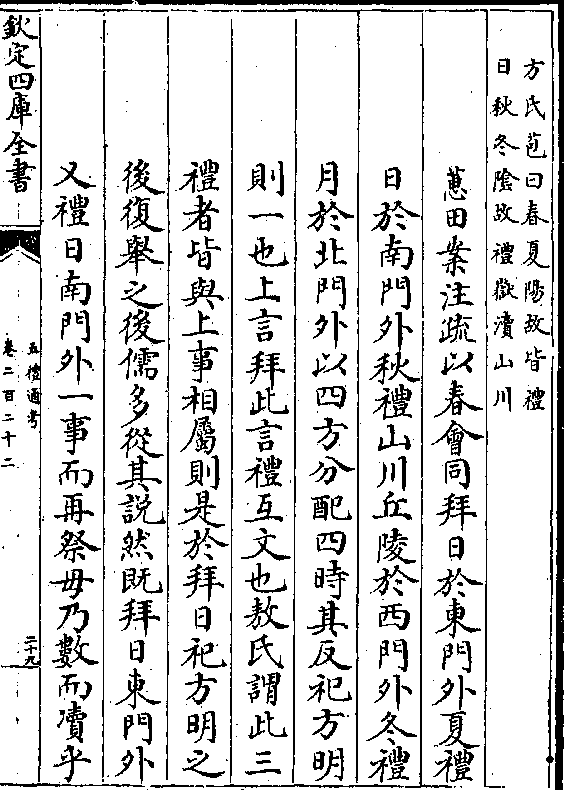 方氏苞曰春夏陽故皆禮
日秋冬陰故禮嶽瀆山川
蕙田案注疏以春會同拜日於東門外夏禮
日於南門外秋禮山川丘陵於西門外冬禮
月於北門外以四方分配四時其反祀方明
則一也上言拜此言禮互文也敖氏謂此三
禮者皆與上事相屬則是於拜日祀方明之
後復舉之後儒多從其説然既拜日東門外
又禮日南門外一事而再祭毋乃數而瀆乎
欽定四庫全書
五禮通考
卷二百二十二
二十九